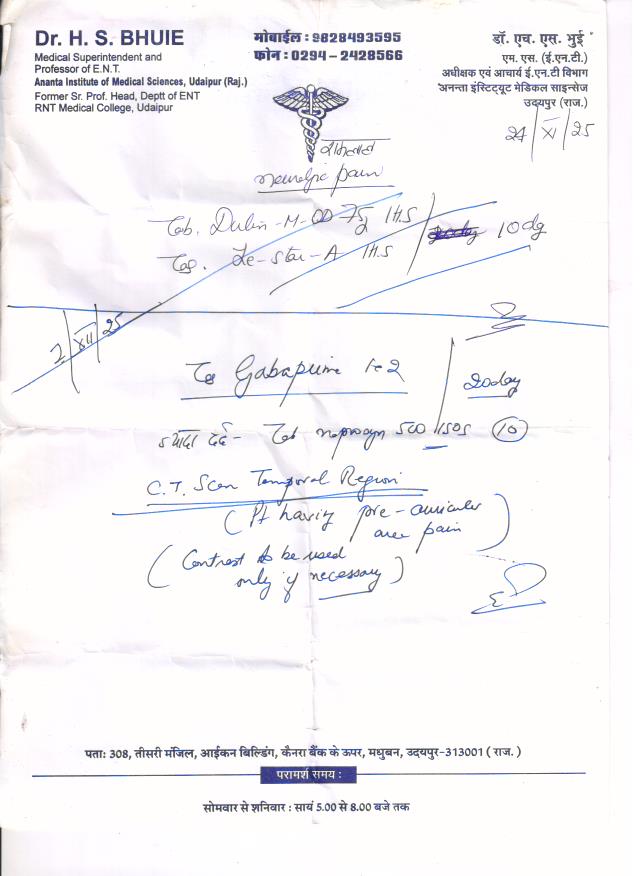 Dr. H. S. BHUIE
Medical Superintendent and
Professor of E.N.T.
Ananta Institute of Medical Sciences, Udaipur (Raj.)
Former Sr. Prof. Head, Deptt of ENT
RNT Medical College, Udaipur
मोबाईल : 9828493595
फोन : 0294 - 2428566
डॉ. एच. एस. भुई
एम. एस. (ई.एन.टी.)
अधीक्षक एवं आचार्य ई.एन.टी विभाग
अनन्ता इंस्टिट्यूट मेडिकल साइन्सेज
उदयपुर (राज.)
24/XI/25
neuralgic pain
Tab. Dulin-M-OD 1H.S
Tab. Ze-star-A 1H.S
10 dg
2/XII/25
Gabapurine 1-2
20day
ज्यादा दर्द - Tab naprosyn 500 1SOS 10
C.T. Scan Temporal Region
(Pt having pre-auricular
area pain)
(Contrast to be used
only if necessary)
पता: 308, तीसरी मंजिल, आईकन बिल्डिंग, कैनरा बैंक के ऊपर, मधुबन, उदयपुर-313001 ( राज. )
परामर्श समय :
सोमवार से शनिवार : सायं 5.00 से 8.00 बजे तक